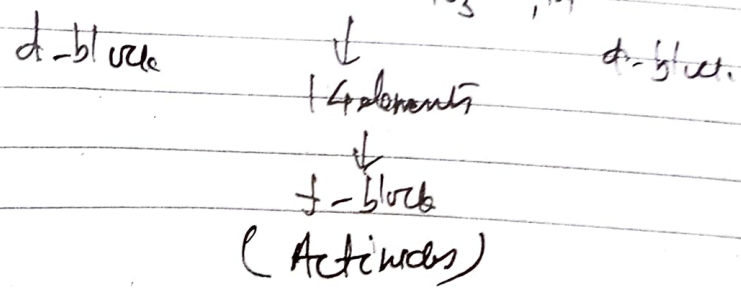 d-block ↓ d-block
14 elements
↓
f-block
(Actinides)